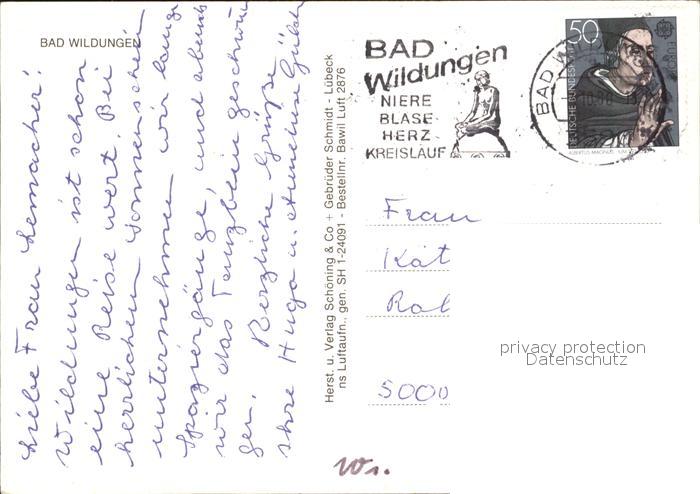 BAD WILDUNGEN
Liebe Frau Lemacher!
Wildungen ist schon
eine Reise wert. Bei
herrlichem Sonnenschein
unternehmen wir lange
Spaziergänge, und abends
wird das Tanzbein geschwun
gen. Herzliche Grüße
Ihre Hugo u. Anneliese
Herst. u. Verlag Schöning & Co + Gebrüder Schmidt - Lübeck
ns Luftaufn., gen. SH 1-24091 - Bestellnr. Bawil Luft 2876
BAD
Wildungen
NIERE
BLASE
HERZ
KREISLAUF
BAD WI
50
DEUTSCHE BUNDESPOST
EUROPA
CEPT
ALBERTUS MAGNUS
Frau
Kät
Rol
5000
privacy protection
Datenschutz